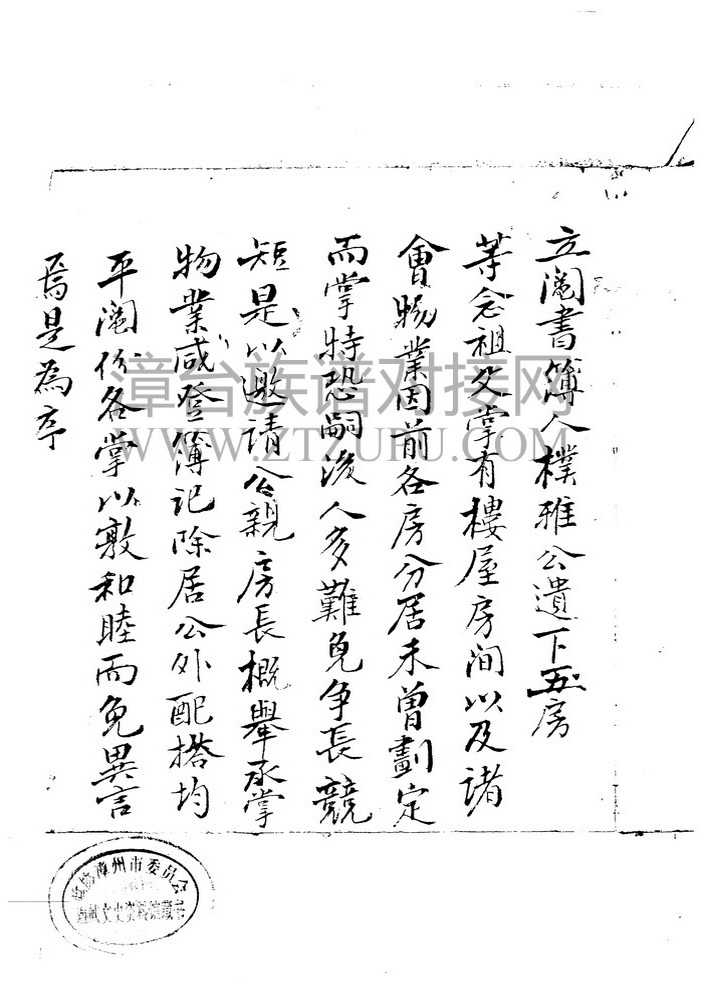 立阄書簿人樸雅公遺下五房
等念祖父掌有樓屋房間以及諸
會物業因前各房分居未曾劃定
而掌特恐嗣後人多難免争長競
短是以邀請公親房長概舉承掌
物業咸登簿记除居公外配搭均
平阄份各掌以敦和睦而免異言
焉是為序
漳台族谱对接网
WWW.ZTZUPU.COM
政协漳州市委员会
文史资料馆藏书